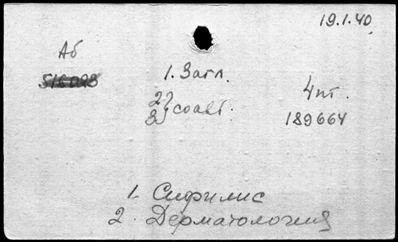 19.1.40
Аб
1. Загл.
516098
2) соавт.
3)
4 пт.
189664
1. Сифилис
2. Дерматология